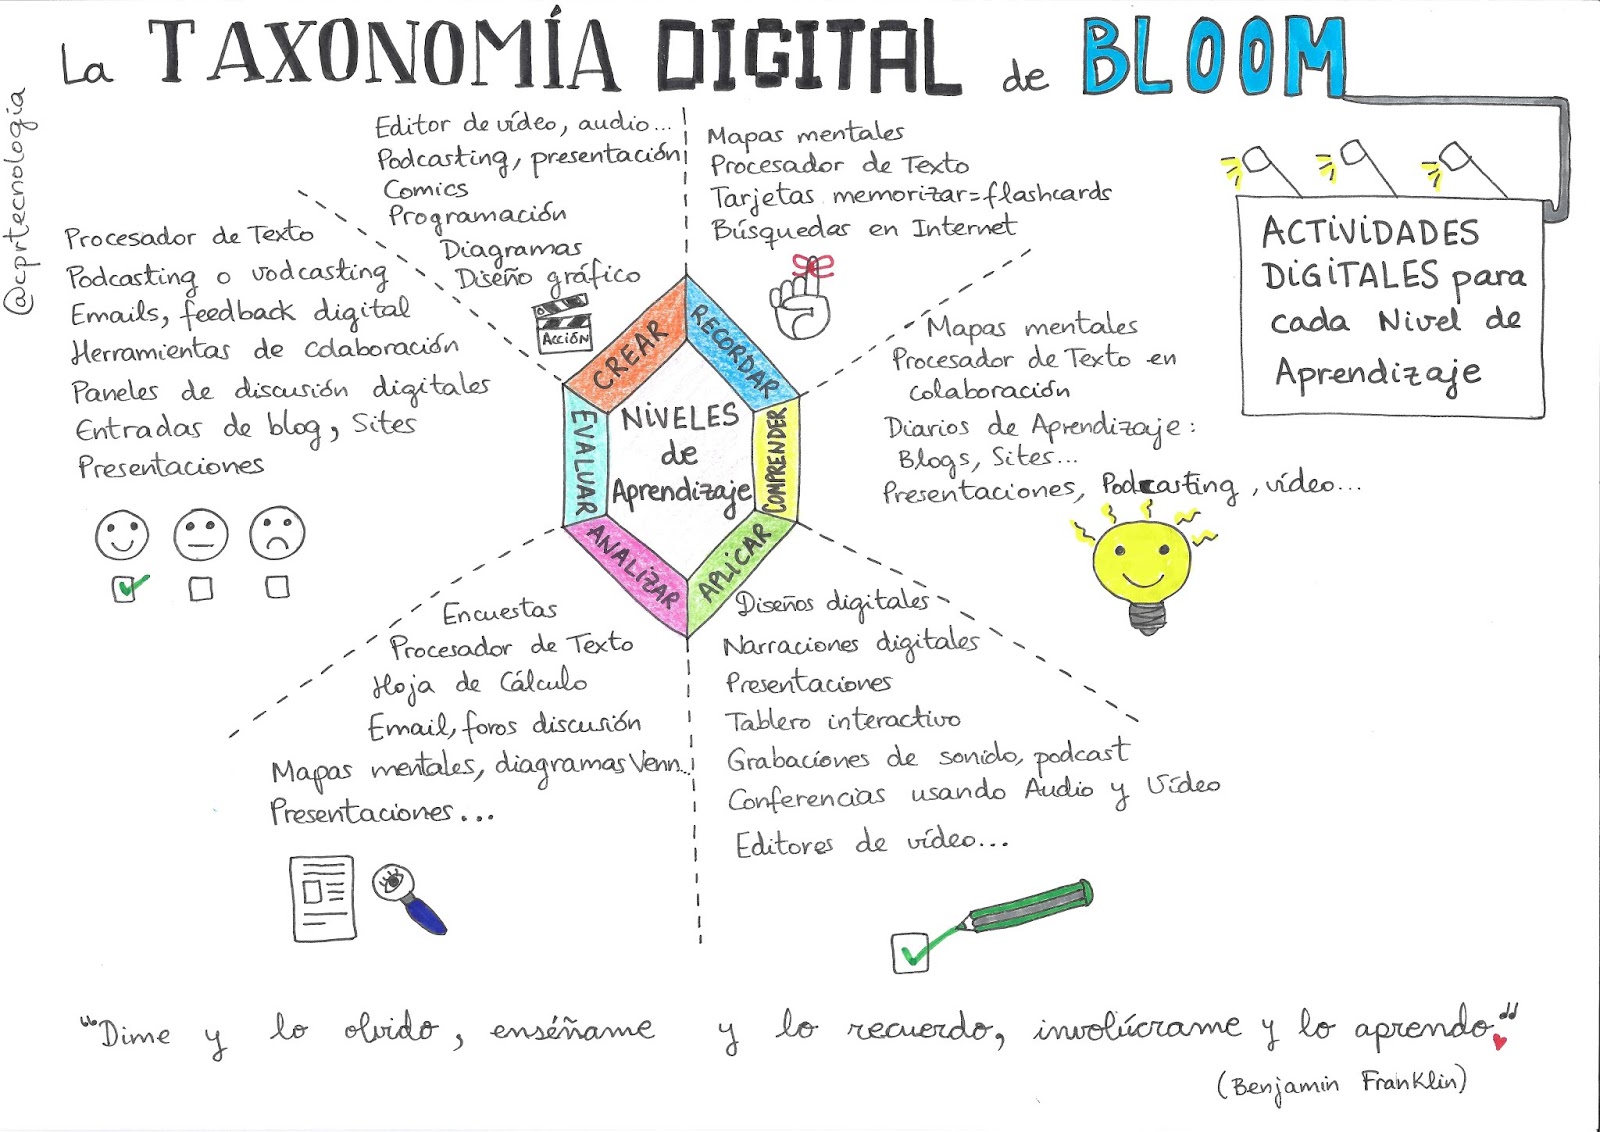 La TAXONOMÍA DIGITAL de BLOOM
@cprtecnologia
ACTIVIDADES
DIGITALES para
cada Nivel de
Aprendizaje
NIVELES
de
Aprendizaje
RECORDAR
Mapas mentales
Procesador de Texto
Tarjetas memorizar=flashcards
Búsquedas en Internet
COMPRENDER
Mapas mentales
Procesador de Texto en
colaboración
Diarios de Aprendizaje:
Blogs, Sites...
Presentaciones, Podcasting, vídeo...
APLICAR
Diseños digitales
Narraciones digitales
Presentaciones
Tablero interactivo
Grabaciones de sonido, podcast
Conferencias usando Audio y Vídeo
Editores de vídeo...
ANALIZAR
Encuestas
Procesador de Texto
Hoja de Cálculo
Email, foros discusión
Mapas mentales, diagramas Venn...
Presentaciones...
EVALUAR
Procesador de Texto
Podcasting o vodcasting
Emails, feedback digital
Herramientas de colaboración
Paneles de discusión digitales
Entradas de blog, Sites
Presentaciones
CREAR
Editor de vídeo, audio...
Podcasting, presentación
Comics
Programación
Diagramas
Diseño gráfico
ACCIÓN
"Dime y lo olvido, enséñame y lo recuerdo, involúcrame y lo aprendo"
(Benjamin Franklin)